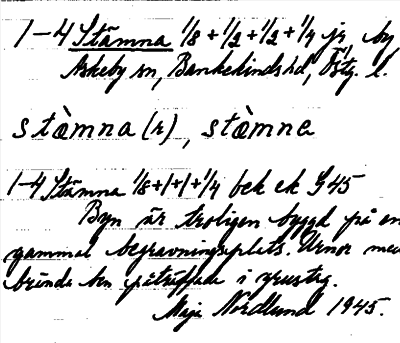 1-4 Stämna 1/8 + 1/2 + 1/2 + 1/4 jr by
Askeby sn, Bankekinds hd, Östg. l.
stæ̀mna (r), stæ̀mne
1-4 Stämna 1/8+1+1+1/4 bek ek G45
Byn är troligen byggd på en
gammal begravningsplats. Urnor med
brända ben påträffade i grustag.
Maja Nordlund 1945.